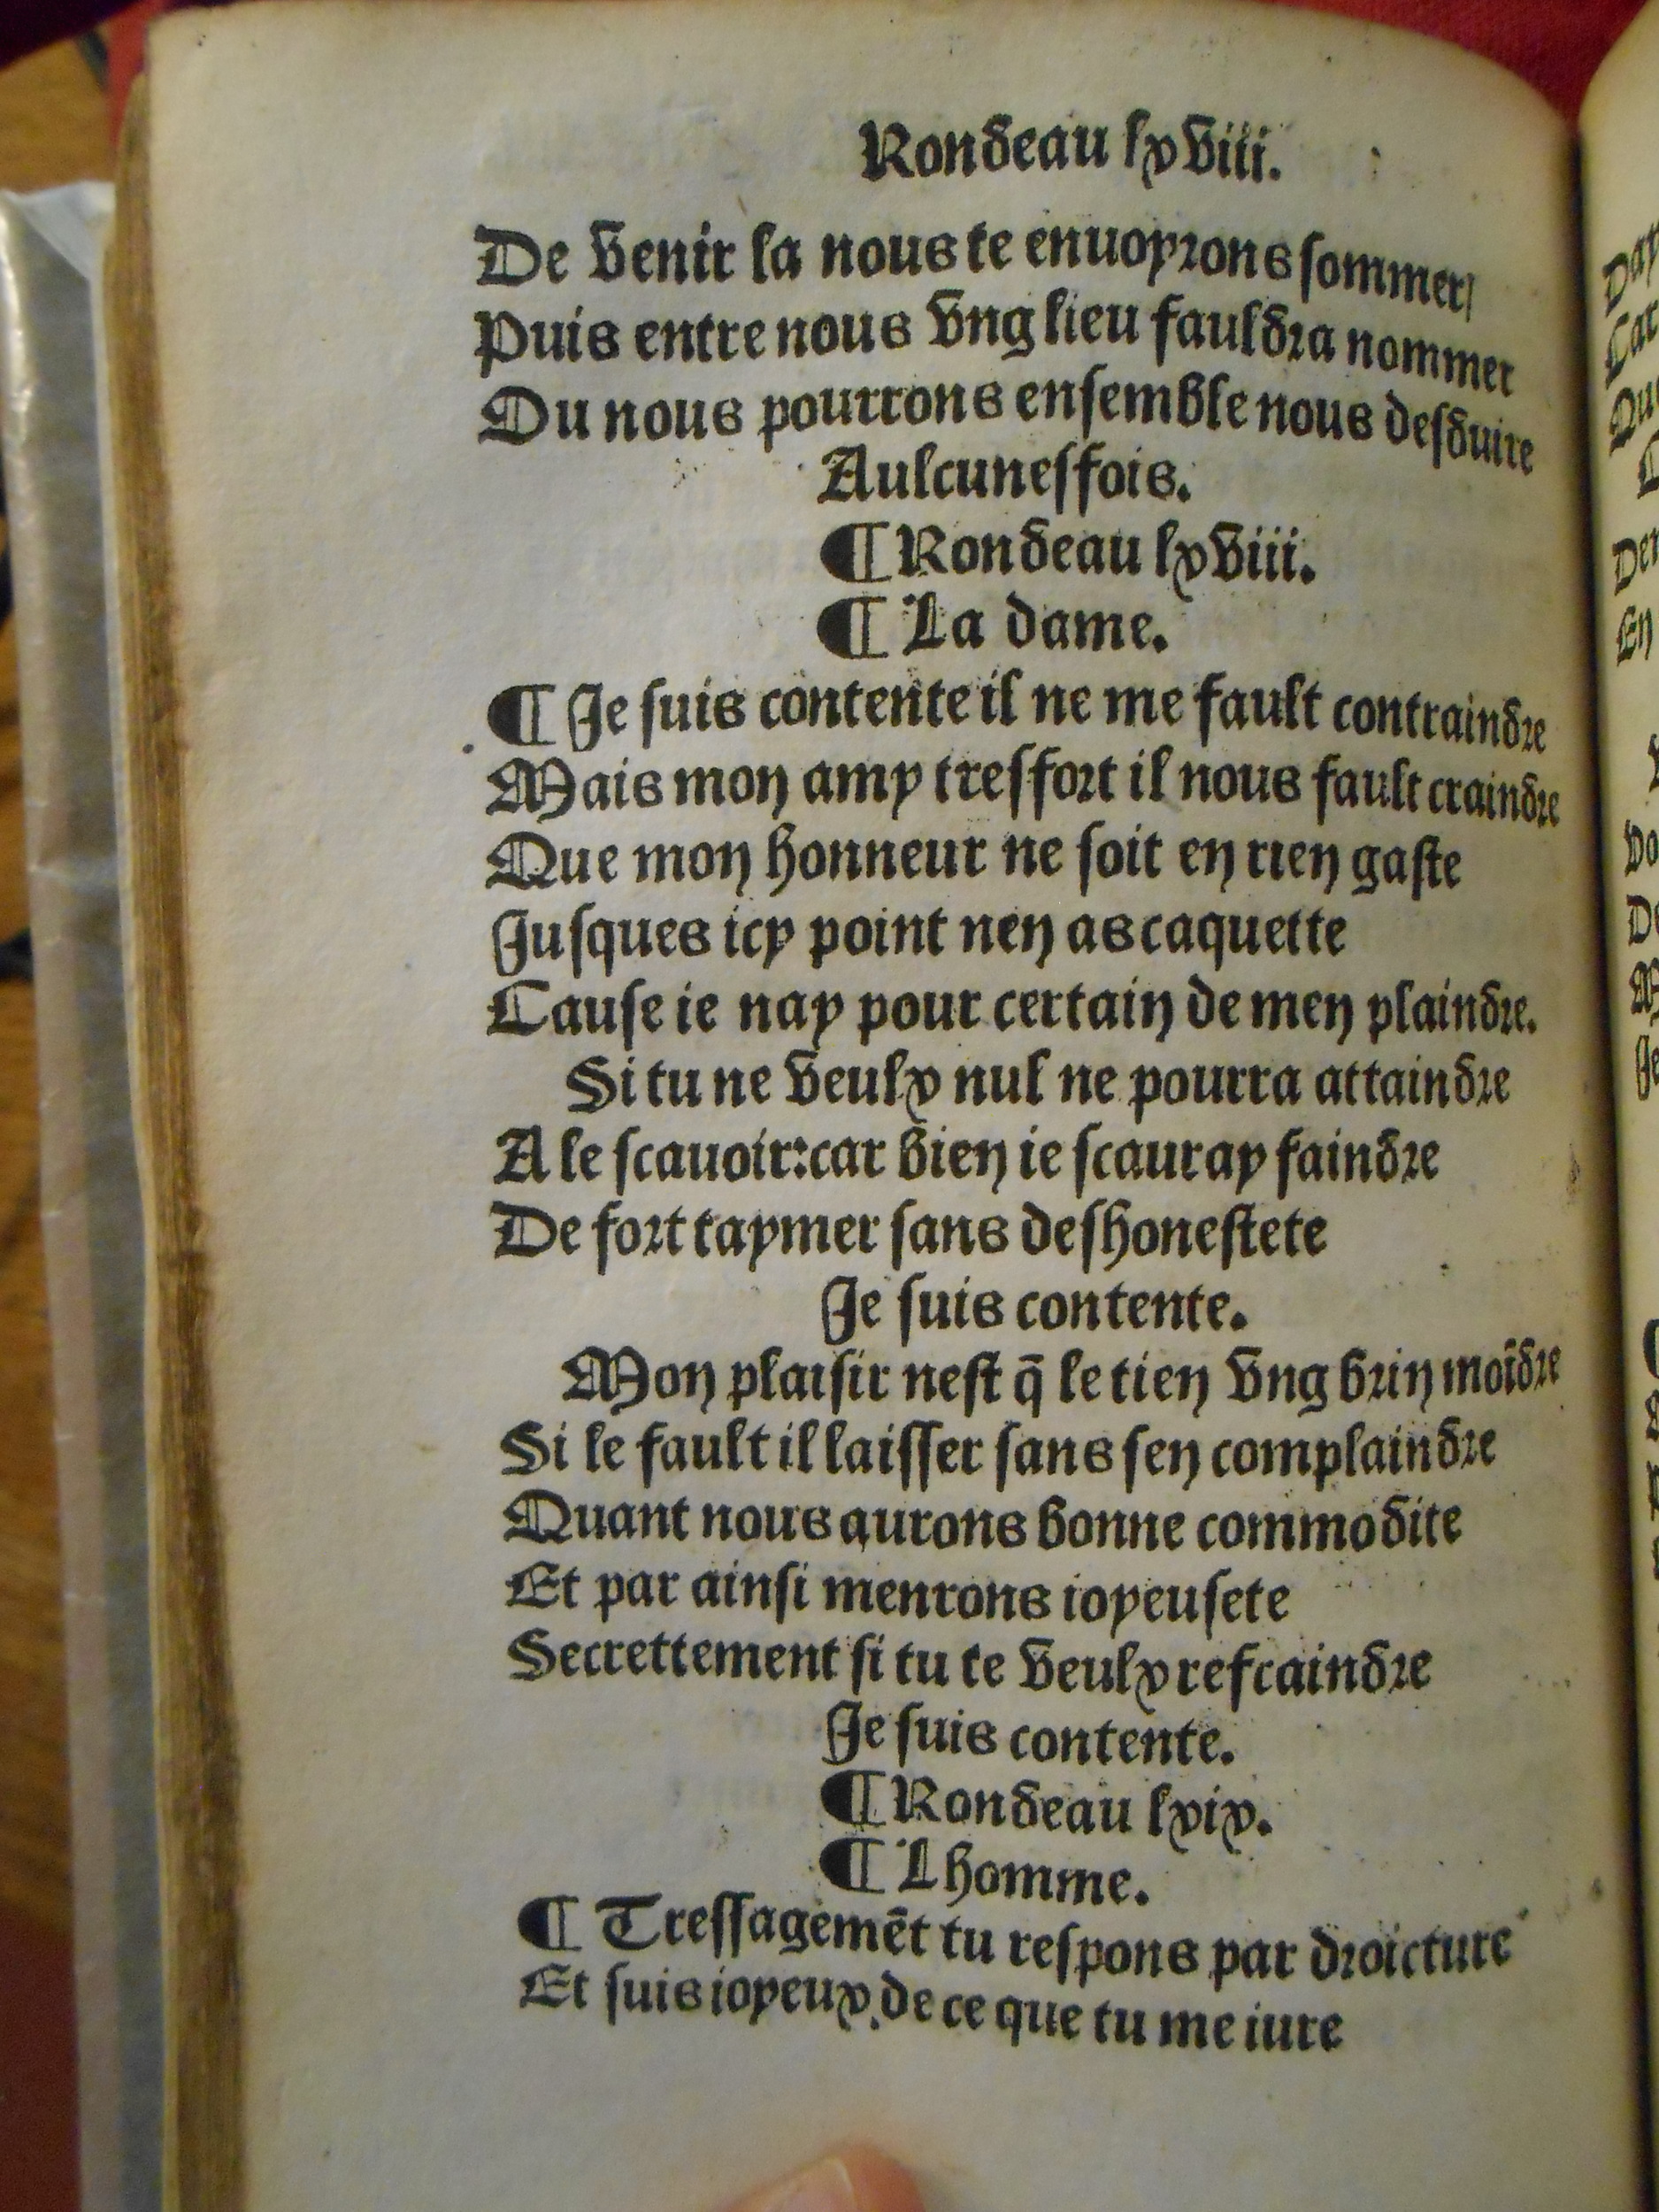 Rondeau lxviii.
De venir la nous te enuoyrons sommer/
Puis entre nous vng lieu fauldra nommer
Ou nous pourrons ensemble nous desduire
Aulcunesfois.
¶ Rondeau lxviii.
¶ La dame.
¶ Je suis contente il ne me fault contraindre
Mais mon amy tresfort il nous fault craindre
Que mon honneur ne soit en rien gaste
Jusques icy point nen as caquette
Cause ie nay pour certain de men plaindre.
Si tu ne veulx nul ne pourra attaindre
A le scauoir:car bien ie scauray faindre
De fort taymer sans deshonestete
Je suis contente.
Mon plaisir nest q̄ le tien vng brin moīdre
Si le fault il laisser sans sen complaindre
Quant nous aurons bonne commodite
Et par ainsi menrons ioyeusete
Secrettement si tu te veulx refraindre
Je suis contente.
¶ Rondeau lxix.
¶ Lhomme.
¶ Tressagemēt tu respons par droicture
Et suis ioyeux de ce que tu me iure